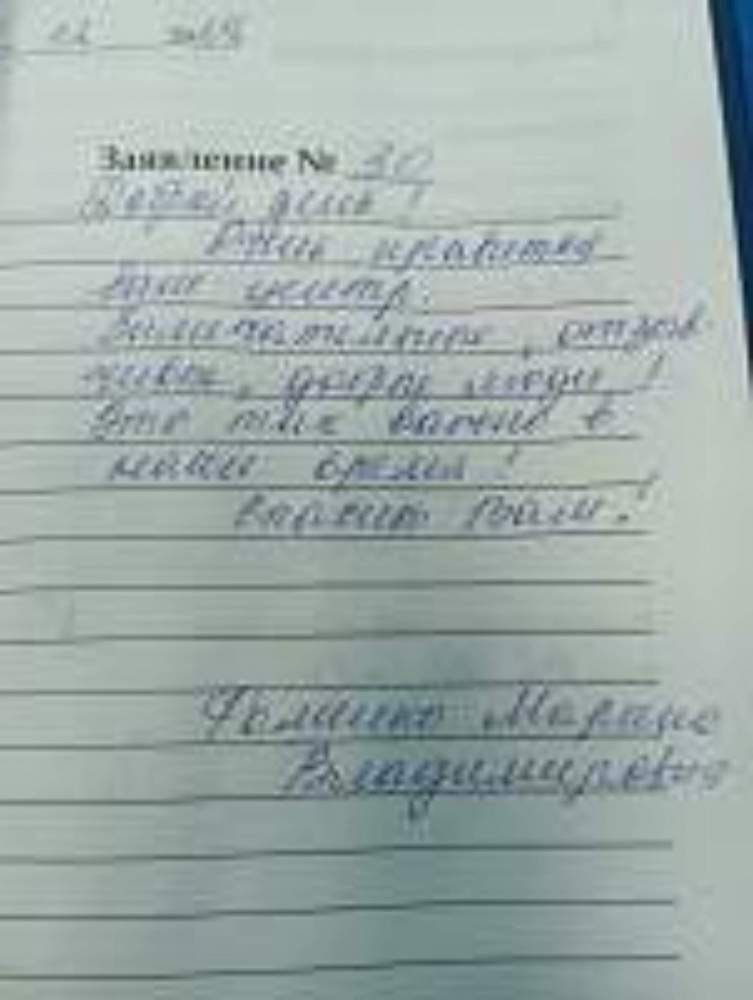 Заявление № 30
Добрый день!
Очень нравится
Ваш центр.
Замечательные, отзыв-
чивые, добрые люди!
Это так важно в
наше время!
Владимировна